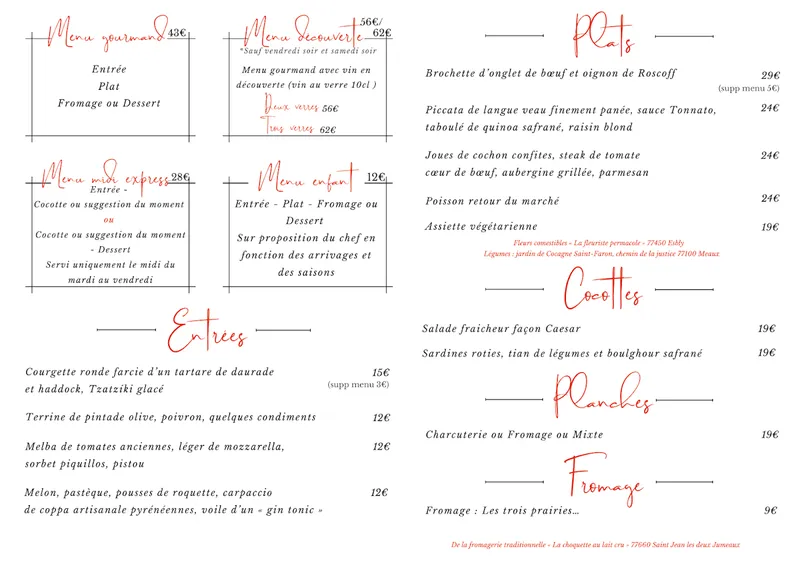 Menu gourmand 43€
Entrée
Plat
Fromage ou Dessert
Menu découverte 56€/
62€
*Sauf vendredi soir et samedi soir
Menu gourmand avec vin en
découverte (vin au verre 10cl )
Deux verres 56€
Trois verres 62€
Menu midi express 28€
Entrée -
Cocotte ou suggestion du moment
ou
Cocotte ou suggestion du moment
- Dessert
Servi uniquement le midi du
mardi au vendredi
Menu enfant 12€
Entrée - Plat - Fromage ou
Dessert
Sur proposition du chef en
fonction des arrivages et
des saisons
Entrées
Courgette ronde farcie d'un tartare de daurade 15€
et haddock, Tzatziki glacé (supp menu 3€)
Terrine de pintade olive, poivron, quelques condiments 12€
Melba de tomates anciennes, léger de mozzarella, 12€
sorbet piquillos, pistou
Melon, pastèque, pousses de roquette, carpaccio 12€
de coppa artisanale pyrénéennes, voile d'un « gin tonic »
Plats
Brochette d'onglet de bœuf et oignon de Roscoff 29€
(supp menu 5€)
Piccata de langue veau finement panée, sauce Tonnato, 24€
taboulé de quinoa safrané, raisin blond
Joues de cochon confites, steak de tomate 24€
cœur de bœuf, aubergine grillée, parmesan
Poisson retour du marché 24€
Assiette végétarienne 19€
Fleurs comestibles - La fleuriste permacole - 77450 Esbly
Légumes : jardin de Cocagne Saint-Faron, chemin de la justice 77100 Meaux
Cocottes
Salade fraicheur façon Caesar 19€
Sardines roties, tian de légumes et boulghour safrané 19€
Planches
Charcuterie ou Fromage ou Mixte 19€
Fromage
Fromage : Les trois prairies... 9€
De la fromagerie traditionnelle - La choquette au lait cru - 77660 Saint Jean les deux Jumeaux